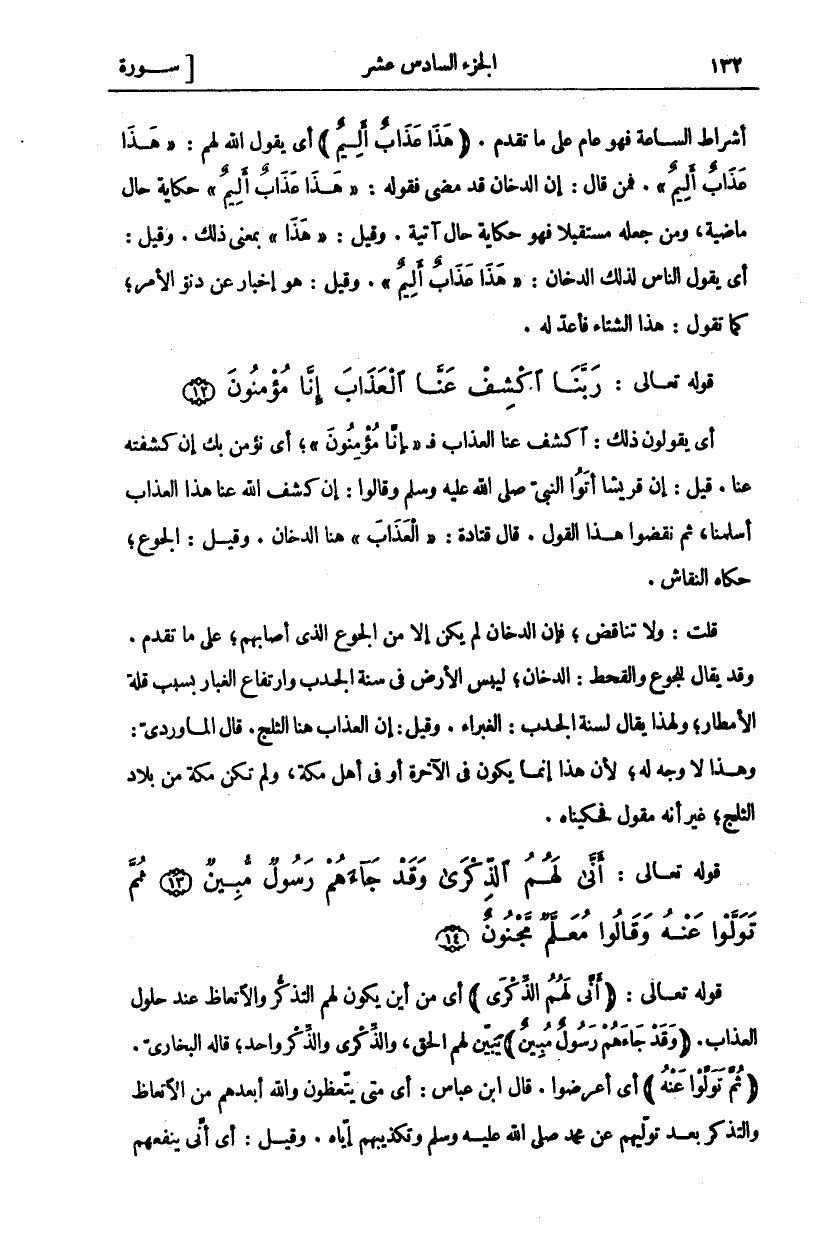 ١٣٢ الجزء السادس عشر [ ســورة
أشراط الساعة فهو عام على ما تقدم . ﴿ هَذَا عَذَابٌ أَلِيمٌ ﴾ أى يقول الله لهم : « هَـذَا
عَذَابٌ أَلِيمٌ » . فمن قال : إن الدخان قد مضى فقوله : « هَـذَا عَذَابٌ أَلِيمٌ » حكاية حال
ماضية، ومن جعله مستقبلا فهو حكاية حال آتية . وقيل : « هَذَا » بمعنى ذلك . وقيل :
أى يقول الناس لذلك الدخان : « هَذَا عَذَابٌ أَلِيمٌ » . وقيل : هو إخبار عن دنوّ الأمر؛
كما تقول : هذا الشتاء فأعدّ له .
قوله تعـالى : رَبَّنَا ٱكْشِفْ عَنَّا ٱلْعَذَابَ إِنَّا مُؤْمِنُونَ ﴿١٢﴾
أى يقولون ذلك : ٱكشف عنا العذاب فـ « إِنَّا مُؤْمِنُونَ »؛ أى نؤمن بك إن كشفته
عنا . قيل : إن قريشا أَتَوُا النبىّ صلى الله عليه وسلم وقالوا : إن كشف الله عنا هذا العذاب
أسلمنا، ثم نقضوا هـذا القول . قال قتادة : « الْعَذَابَ » هنا الدخان . وقيـل : الجوع؛
حكاه النقاش .
قلت : ولا تناقض ؛ فإن الدخان لم يكن إلا من الجوع الذى أصابهم؛ على ما تقدم .
وقد يقال للجوع والقحط : الدخان؛ ليبس الأرض فى سنة الجدب وارتفاع الغبار بسبب قلة
الأمطار؛ ولهذا يقال لسنة الجدب : الغبراء . وقيل: إن العذاب هنا الثلج. قال المـاوردىّ :
وهـذا لا وجه له؛ لأن هذا إنمـا يكون فى الآخرة أو فى أهل مكة، ولم تكن مكة من بلاد
الثلج؛ غير أنه مقول فحكيناه .
قوله تعـالى : أَنَّىٰ لَهُـمُ ٱلذِّكْرَىٰ وَقَدْ جَآءَهُمْ رَسُولٌ مُّبِـينٌ ﴿١٣﴾ ثُمَّ
تَوَلَّوْا عَنْـهُ وَقَالُوا مُعَلَّمٌ مَّجْنُونٌ ﴿١٤﴾
قوله تعـالى : ﴿ أَنَّى لَهُمُ الذِّكْرَى ﴾ أى من أين يكون لهم التذكُّر والاتعاظ عند حلول
العذاب. ﴿ وَقَدْ جَاءَهُمْ رَسُولٌ مُبِينٌ ﴾ يبيّن لهم الحق، والذِّكرى والذِّكر واحد؛ قاله البخارىّ .
﴿ ثُمَّ تَوَلَّوْا عَنْهُ ﴾ أى أعرضوا . قال ابن عباس : أى متى يتّعظون والله أبعدهم من الاتعاظ
والتذكر بعـد تولّيهم عن محمد صلى الله عليـه وسلم وتكذيبهم إيّاه . وقيـل : أى أنَّى ينفعهم